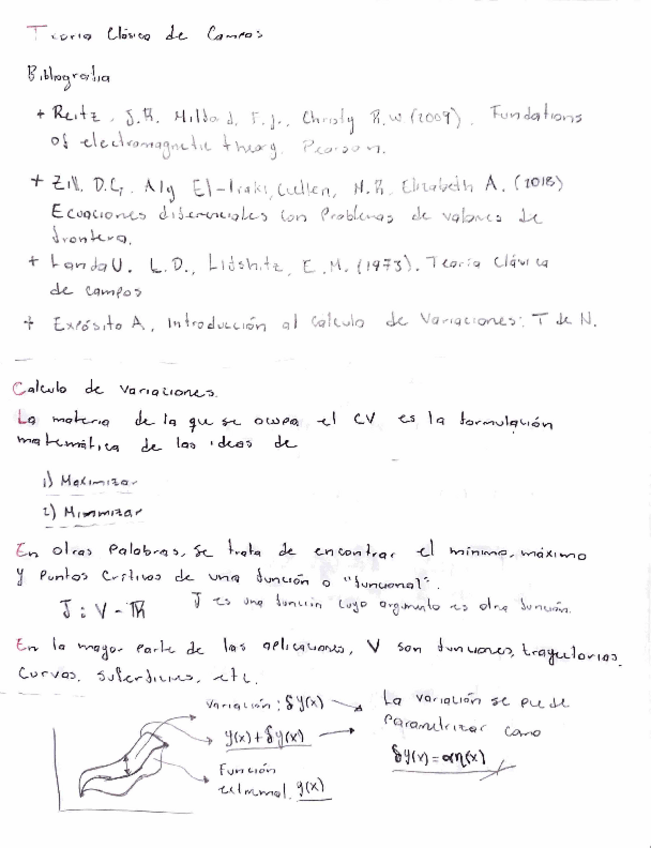 Teoria Clásica de Campos
Bibliografia
+ Reitz, J.R. Milford, F.J., Christy R.W (2009). Fundations
of electromagnetic theory. Pearson.
+ Zill, D.G, Aly El-Iraki, Cullen, M.R, Elizabeth A. (2018)
Ecuaciones diferenciales con Problemas de valores de
frontera.
+ Landau. L.D., Lifshitz, E.M. (1973). Teoría Clásica
de campos
+ Expósito A, Introducción al Calculo de Variaciones: T de N.
Calculo de Variaciones.
La materia de la que se ocupa el CV es la formulación
matemática de las ideas de
1) Maximizar
2) Minimizar
En otras Palabras, se trata de encontrar el mínimo, máximo
y Puntos Críticos de una función o "funcional".
J : V - ℝ J es una función cuyo argumento es otra función.
En la mayor parte de las aplicaciones, V son funciones, trayectorias,
Curvas, superficies, etc.
Variación: δy(x)
y(x)+δy(x)
Función
extremal. y(x)
La variación se puede
Parametrizar como
δy(x)=αη(x)